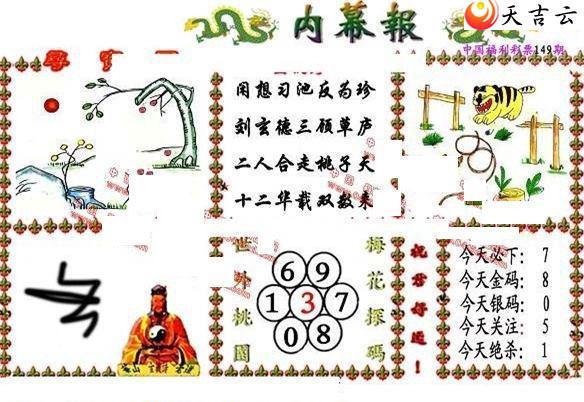 天吉云
内幕報
中国福利彩票149期
用想习池反为珍
刘玄德三顾草庐
二人合走桃子天
十二华载双数来
世外桃園
梅花探碼
6 9
1 3 7
0 8
祝君好运!
今天必下: 7
今天金码: 8
今天银码: 0
今天关注: 5
今天绝杀: 1